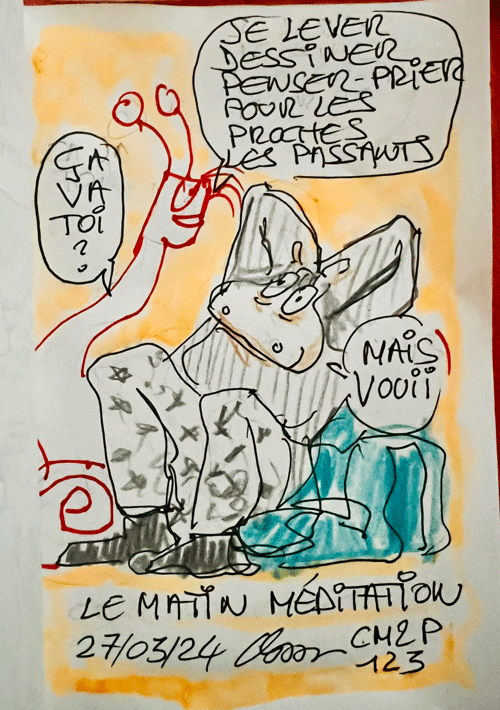 JE LEVER
DESSINER
PENSER-PRIER
POUR LES
PROCHES
LES PASSANTS
ÇA
VA
TOI
?
MAIS
VOUII
LE MATIN MÉDITATION
27/03/24
CM2P
123